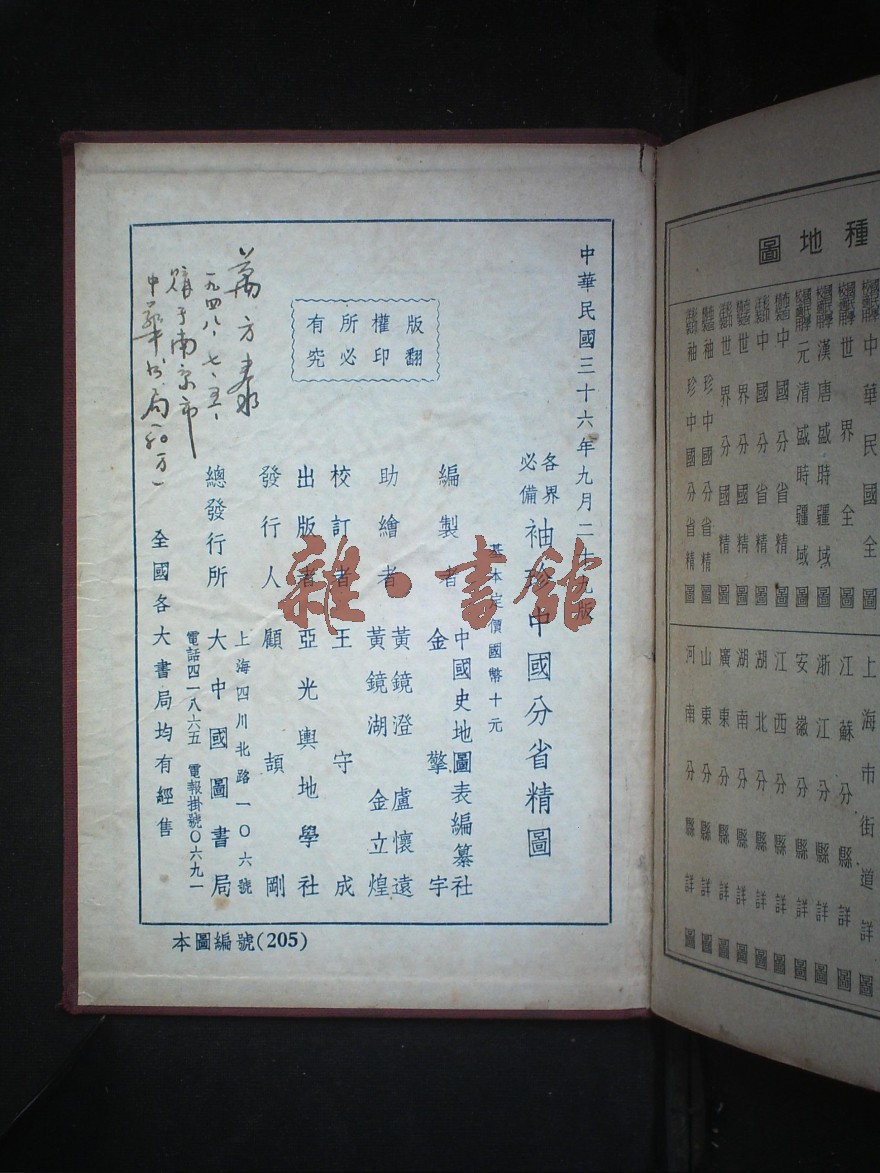 中華民國三十六年九月二十九版
各界必備 袖珍中國分省精圖
基本定價國幣十元
編製者 中國史地圖表編纂社 金擎宇
助繪者 黃鏡澄 盧懷遠 黃鏡湖 金立煌
校訂者 王守成
出版者 亞光輿地學社
發行人 顧頡剛
總發行所 大中國圖書局
上海四川北路一〇六號
電話四一八六五 電報掛號〇六九一
全國各大書局均有經售
版權所有
翻印必究
萬方
一九四八、七、五、
購于南京市
中華书局
本圖編號(205)
雜·書館
種地圖
中華民國全圖
世界全圖
漢唐盛時疆域圖
元清盛時疆域圖
中國分省精圖
中國分省精圖
世界分國精圖
世界分國精圖
袖珍中國分省精圖
袖珍中國分省精圖
上海市街道詳圖
江蘇分縣詳圖
浙江分縣詳圖
安徽分縣詳圖
江西分縣詳圖
湖北分縣詳圖
湖南分縣詳圖
廣東分縣詳圖
山東分縣詳圖
河南分縣詳圖